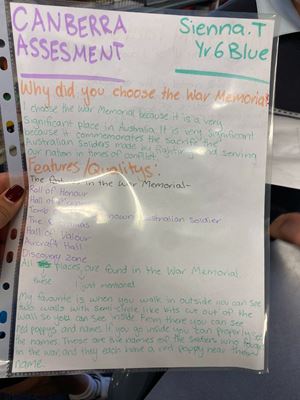 CANBERRA
ASSESMENT
Sienna.T
Yr 6 Blue
Why did you choose the War Memorial?
I choose the War Memorial because it is a very
significant place in Australia. It is very significant
because it commemorates the sacrifice the
Australian Soldiers made by fighting and serving
our nation in times of conflict.
Features/Qualitys:
The in the War Memorial-
Roll of Honour
Hall of
Tomb Australian soldier
The
Hall of Valour
Aircraft Hall
Discovery Zone
All places are found in the War Memorial.
these I just mentioned
My favourite is when you walk in outside you can see
two walls with semi-circle like bits cut out of the
wall so you can see inside from there you can see
red poppys and names. If you go inside you can properly see
the names. These are the names of the soldiers who fought
in the war, and they each have a red poppy near their
name.